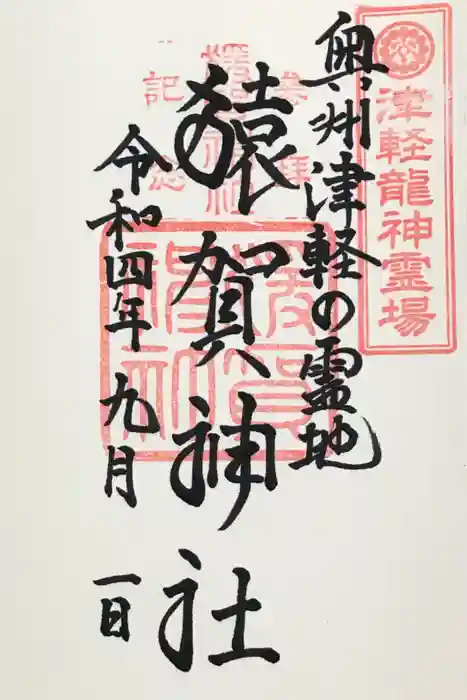 津軽龍神霊場
奥州津軽の霊地
参拝
猿賀神社
記念
猿賀神社
猿賀神社
令和四年九月一日